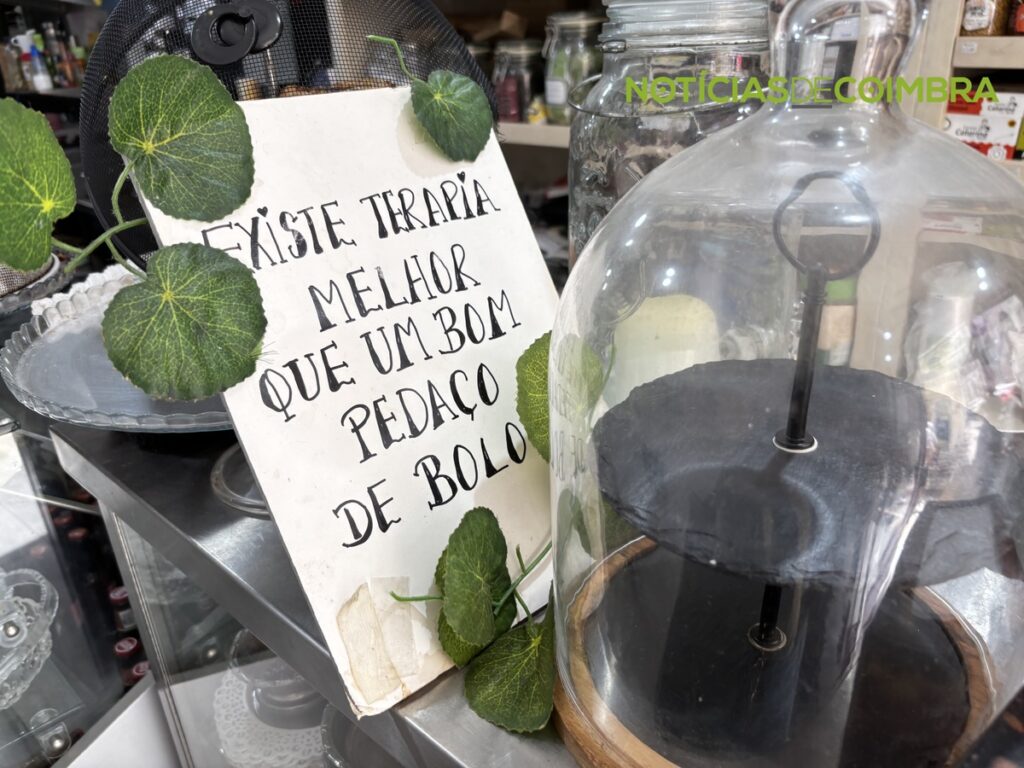 NOTÍCIASDECOIMBRA
EXISTE TERAPIA
MELHOR
QUE UM BOM
PEDAÇO
DE BOLO